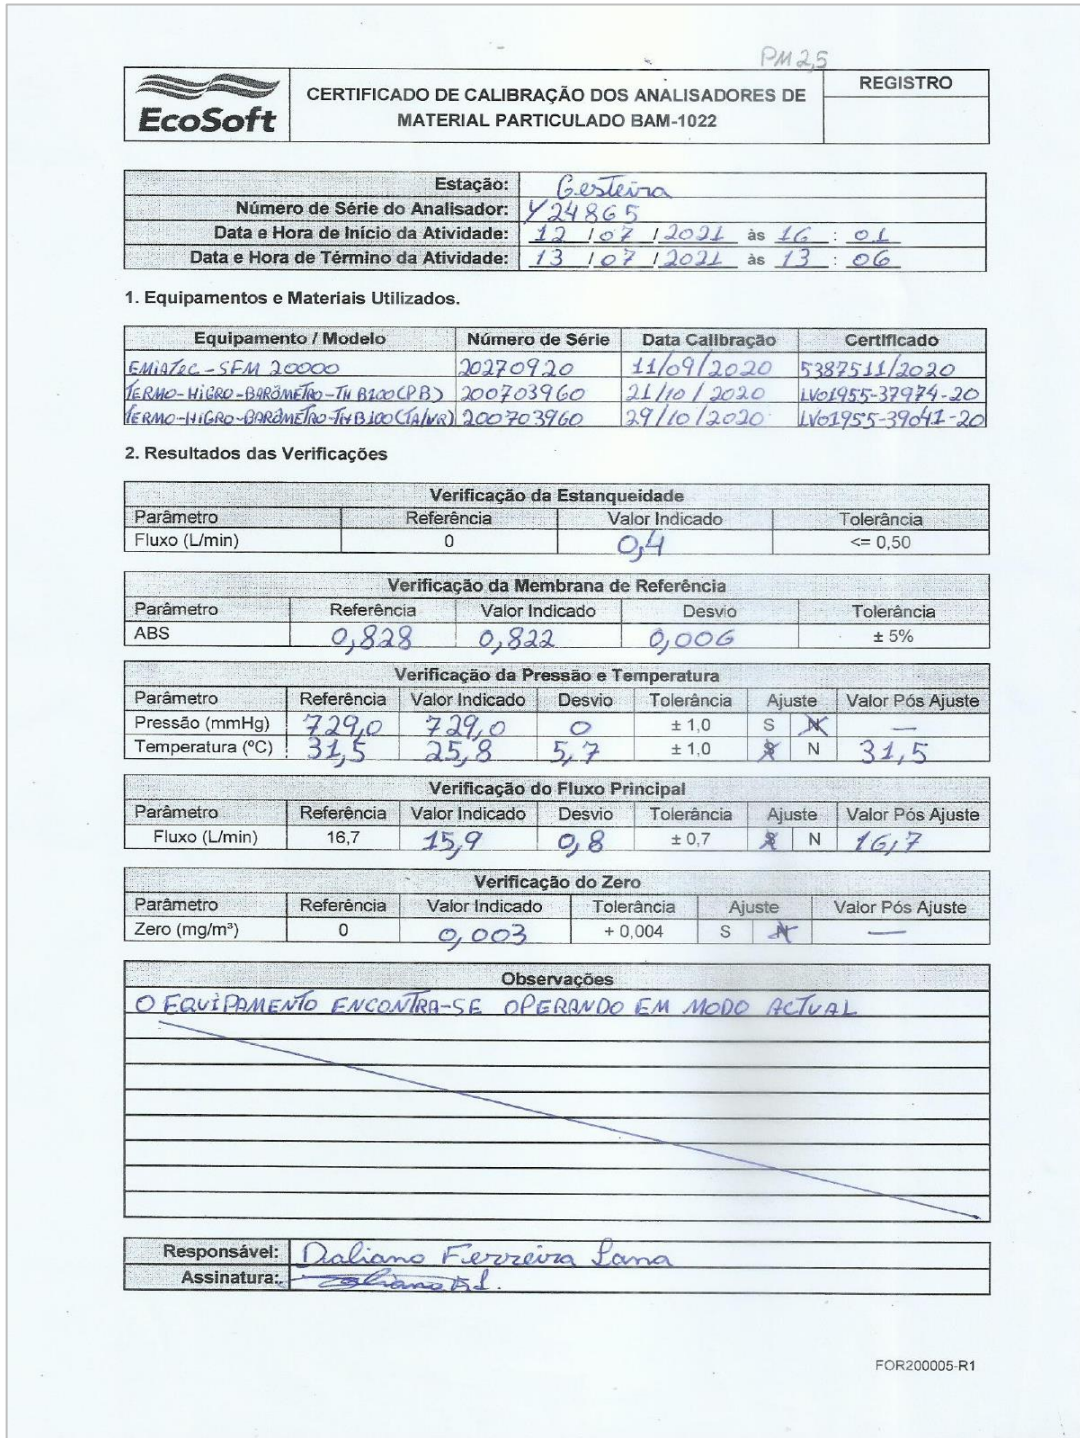 PM 2,5
EcoSoft
CERTIFICADO DE CALIBRAÇÃO DOS ANALISADORES DE
MATERIAL PARTICULADO BAM-1022
REGISTRO
Estação: Gesteira
Número de Série do Analisador: Y24865
Data e Hora de Início da Atividade: 12 / 07 / 2021 às 16 : 01
Data e Hora de Término da Atividade: 13 / 07 / 2021 às 13 : 06
1. Equipamentos e Materiais Utilizados.
Equipamento / Modelo Número de Série Data Calibração Certificado
EMIATEC - SFM 20000 20270920 11/09/2020 5387511/2020
TERMO-HIGRO-BARÔMETRO-THB100(PB) 200703960 21/10/2020 LV01955-37974-20
TERMO-HIGRO-BARÔMETRO-THB100(TA/UR) 200703960 29/10/2020 LV01955-39041-20
2. Resultados das Verificações
Verificação da Estanqueidade
Parâmetro Referência Valor Indicado Tolerância
Fluxo (L/min) 0 0,4 <= 0,50
Verificação da Membrana de Referência
Parâmetro Referência Valor Indicado Desvio Tolerância
ABS 0,828 0,822 0,006 ± 5%
Verificação da Pressão e Temperatura
Parâmetro Referência Valor Indicado Desvio Tolerância Ajuste Valor Pós Ajuste
Pressão (mmHg) 729,0 729,0 0 ± 1,0 S N —
Temperatura (ºC) 31,5 25,8 5,7 ± 1,0 S N 31,5
Verificação do Fluxo Principal
Parâmetro Referência Valor Indicado Desvio Tolerância Ajuste Valor Pós Ajuste
Fluxo (L/min) 16,7 15,9 0,8 ± 0,7 S N 16,7
Verificação do Zero
Parâmetro Referência Valor Indicado Tolerância Ajuste Valor Pós Ajuste
Zero (mg/m³) 0 0,003 + 0,004 S N —
Observações
O EQUIPAMENTO ENCONTRA-SE OPERANDO EM MODO ACTUAL
Responsável: Daliano Ferreira Lana
Assinatura:
FOR200005-R1